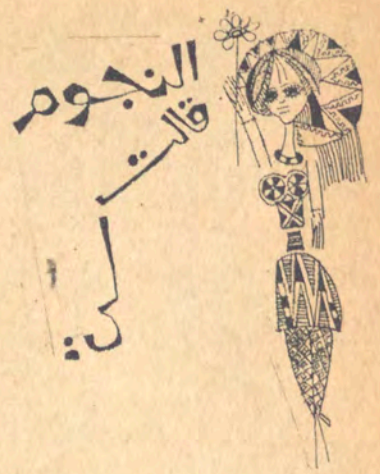 النجوم
قالت
لى: